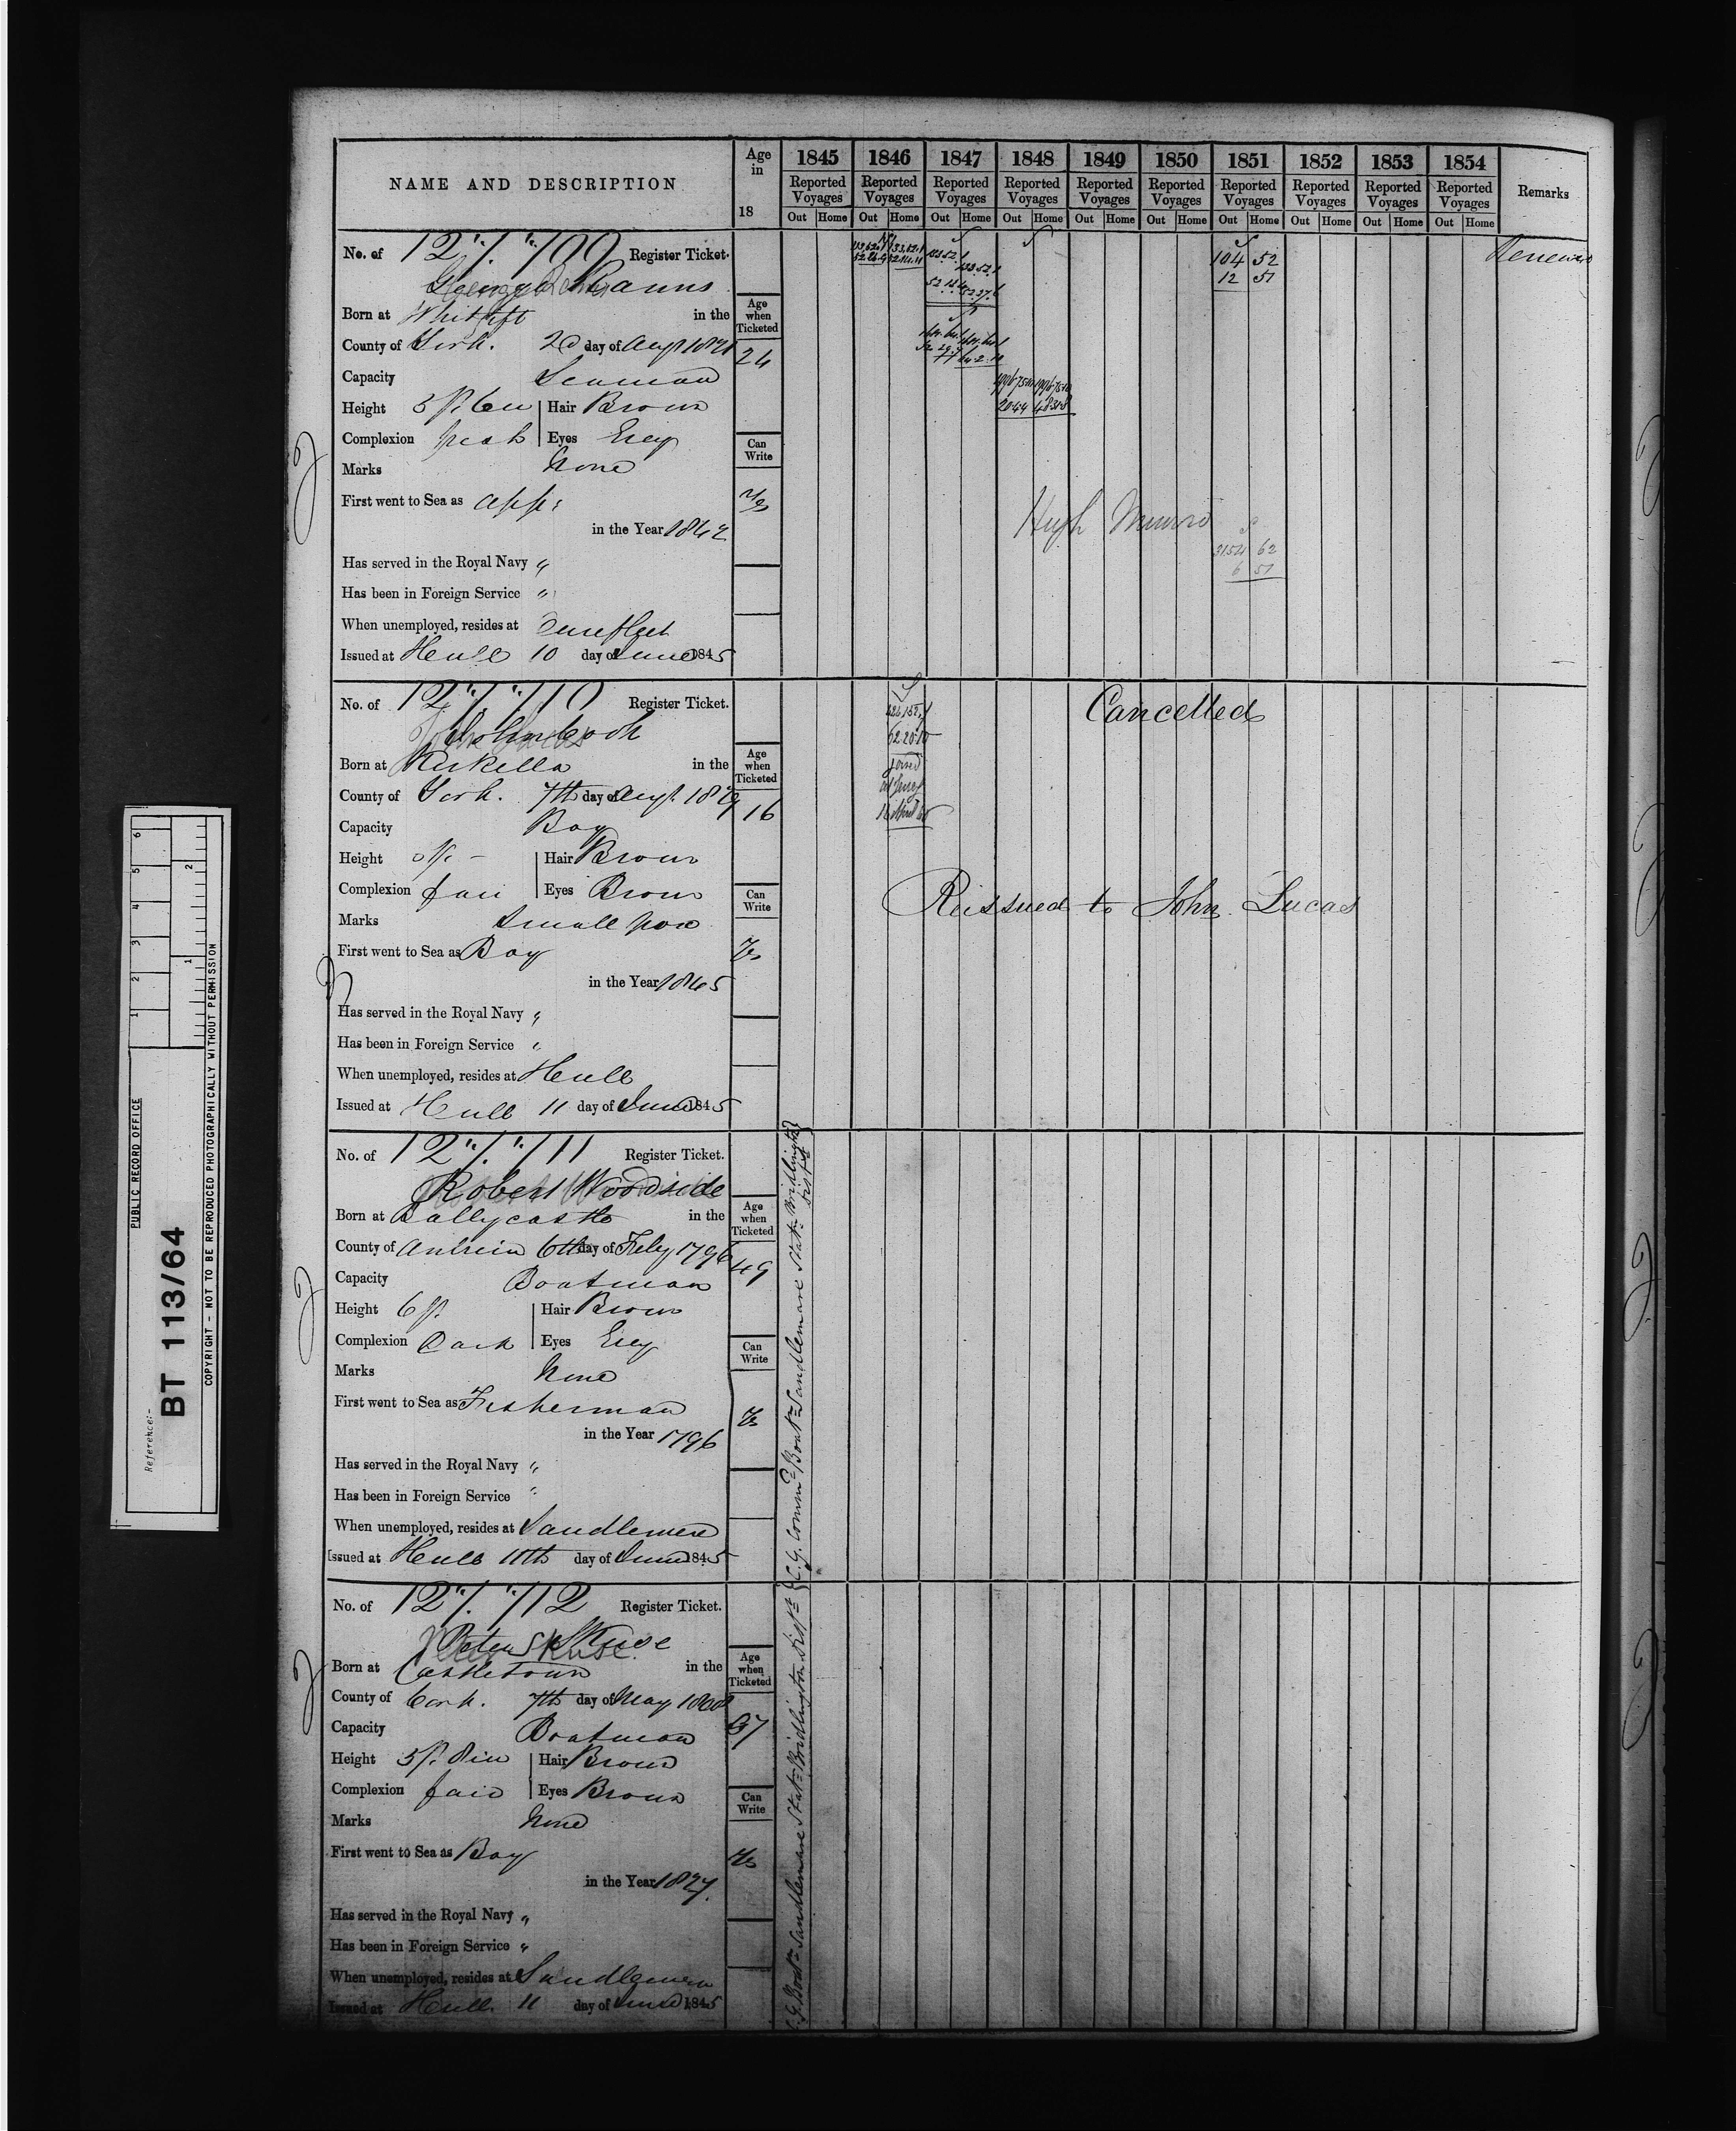 NAME AND DESCRIPTION
Age in 18
1845 1846 1847 1848 1849 1850 1851 1852 1853 1854
Reported Voyages Reported Voyages Reported Voyages Reported Voyages Reported Voyages Reported Voyages Reported Voyages Reported Voyages Reported Voyages Reported Voyages
Remarks
Out Home Out Home Out Home Out Home Out Home Out Home Out Home Out Home Out Home Out Home
No. of Register Ticket.
George
Born at Whitgift in the
County of York. 20 day of Augt 1821
Capacity Seaman
Height 5 ft 6 in Hair Brown
Complexion fresh Eyes Grey
Marks None
First went to Sea as App:
in the Year 1842
Has served in the Royal Navy "
Has been in Foreign Service "
When unemployed, resides at Ousefleet
Issued at Hull 10 day of June 1845
Age when Ticketed
24
Can Write
Yes
104 52
12 51
Renewed
Hugh Munro
3154 62
6 51
No. of Register Ticket.
Born at Kirkella in the
County of York. 7th day of Augt. 1829
Capacity Boy
Height Hair Brown
Complexion fair Eyes Brown
Marks Small pox
First went to Sea as Boy
in the Year 1845
Has served in the Royal Navy "
Has been in Foreign Service "
When unemployed, resides at Hull
Issued at Hull 11 day of June 1845
Age when Ticketed
16
Can Write
Yes
Cancelled
Reissued to John Lucas
No. of Register Ticket.
Robert Woodside
Born at Ballycastle in the
County of Antrim 6th day of Feby 1796
Capacity Boatman
Height 6 ft. Hair Brown
Complexion Dark Eyes Grey
Marks None
First went to Sea as Fisherman
in the Year 1796
Has served in the Royal Navy "
Has been in Foreign Service "
When unemployed, resides at Sandlemere
Issued at Hull 11th day of June 1845
Age when Ticketed
49
Can Write
Yes
C. G. Commd Boatn Sandlemare Statn Bridlington Dist
No. of Register Ticket.
Peter Skuse
Born at Castletown in the
County of Cork. 7th day of May 1808
Capacity Boatman
Height 5 ft. 8 in Hair Brown
Complexion fair Eyes Brown
Marks None
First went to Sea as Boy
in the Year 1827.
Has served in the Royal Navy "
Has been in Foreign Service "
When unemployed, resides at Sandlemere
Issued at Hull 11 day of June 1845
Age when Ticketed
37
Can Write
Yes
C. G. Boatn Sandlemare Statn Bridlington Dist
PUBLIC RECORD OFFICE
1 2 3 4 5 6
1 2
Reference:-
BT 113/64
COPYRIGHT - NOT TO BE REPRODUCED PHOTOGRAPHICALLY WITHOUT PERMISSION